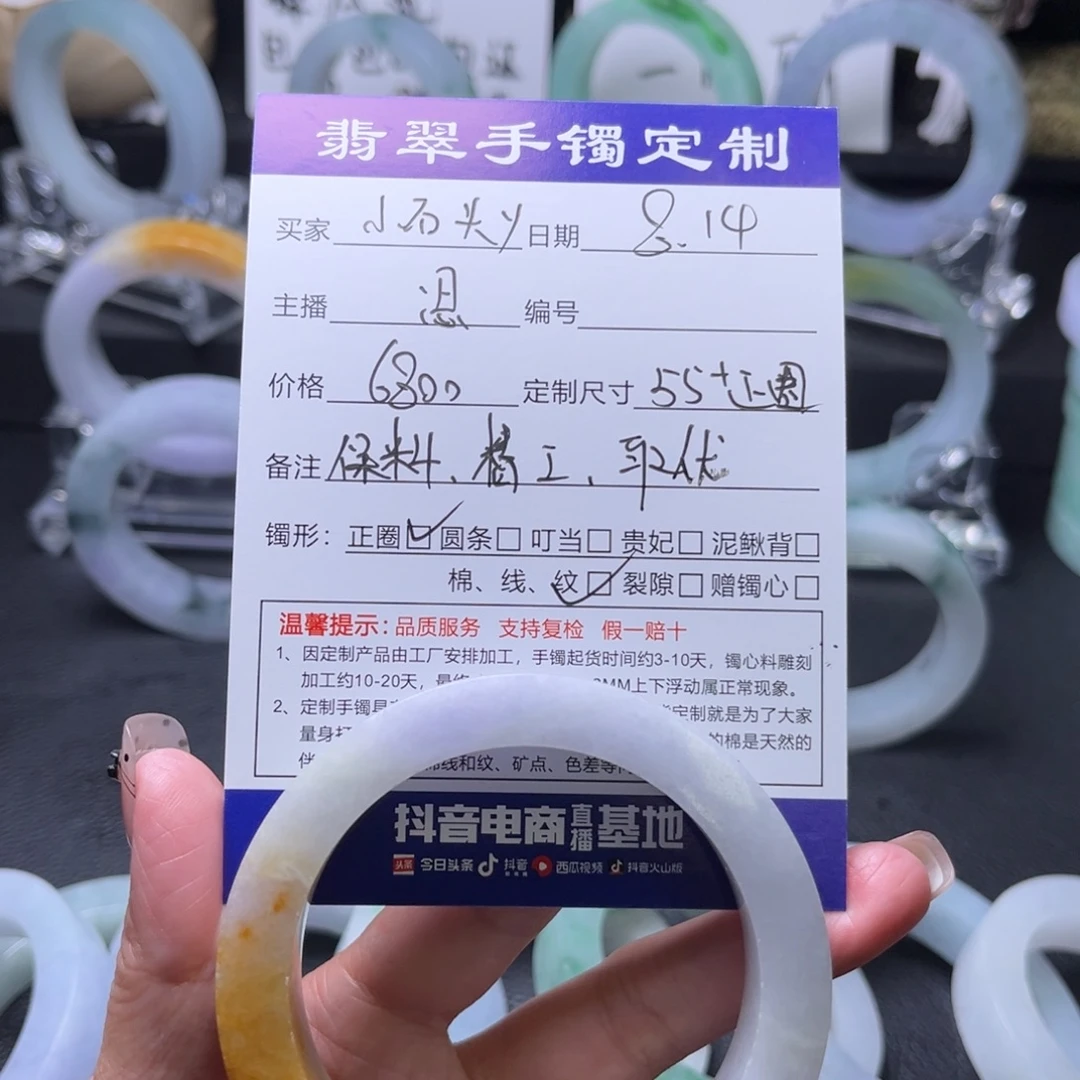 包 色 证
翡翠手镯定制
买家 小石头y 日期 8.14
主播 温 编号
价格 6800 定制尺寸 55+正圈
备注 保料、精工、取伏
镯形： 正圈☑ 圆条□ 叮当□ 贵妃□ 泥鳅背□
棉、线、纹☑ 裂隙□ 赠镯心□
温馨提示：品质服务 支持复检 假一赔十
1、因定制产品由工厂安排加工，手镯起货时间约3-10天，镯心料雕刻
加工约10-20天， MM上下浮动属正常现象。
2、定制手镯 定制就是为了大家
量身打 的棉是天然的
伴 棉线和纹、矿点、色差等
抖音电商直播基地
头条 今日头条 抖音 西瓜视频 抖音火山版